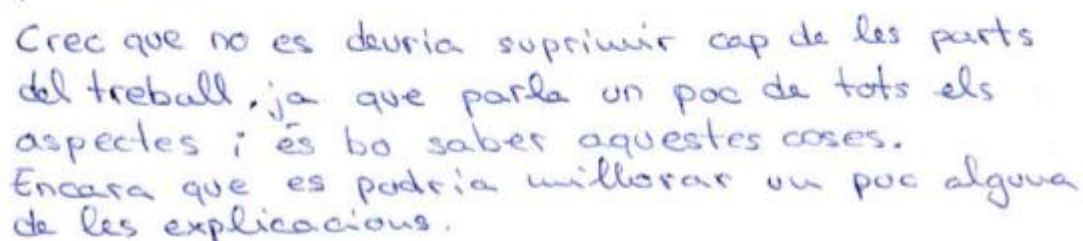 Crec que no es deuria suprimir cap de les parts
del treball, ja que parla un poc de tots els
aspectes i és bo saber aquestes coses.
Encara que es podria millorar un poc alguna
de les explicacions.